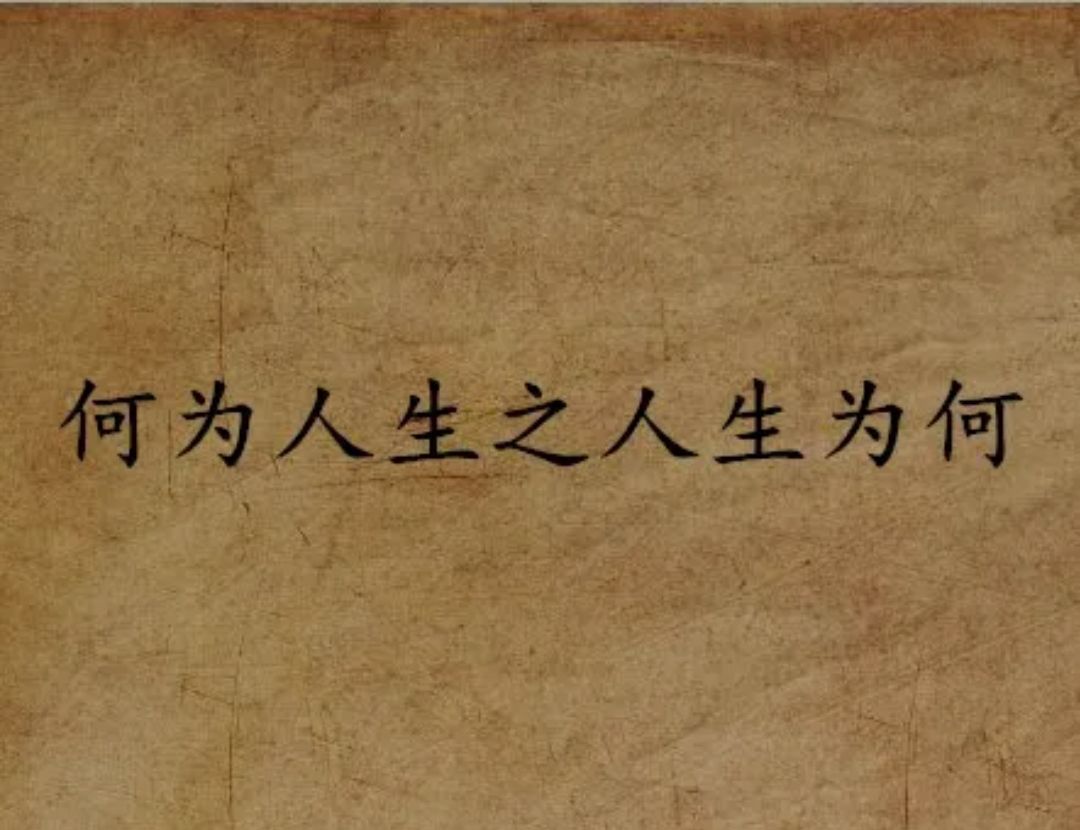 何为人生之人生为何